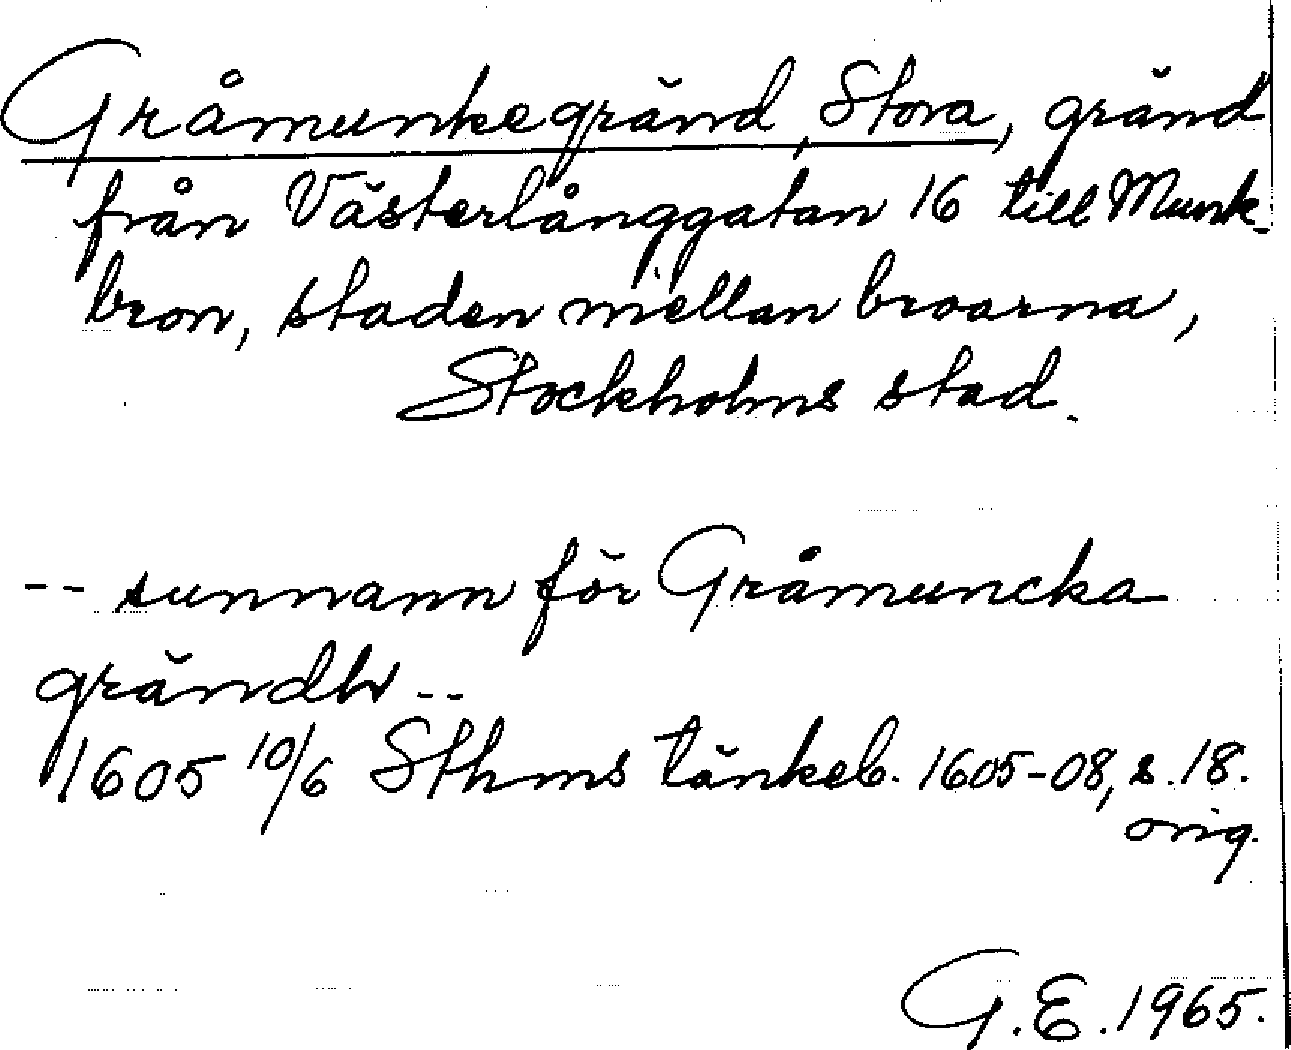 Gråmunkegränd, Stora, gränd
från Västerlånggatan 16 till Munk-
bron, staden mellan broarna,
Stockholms stad.
-- sunnann för Gråmuncka
grändh --
1605 10/6 Sthms tänkeb. 1605-08, s. 18.
orig.
G.E. 1965.